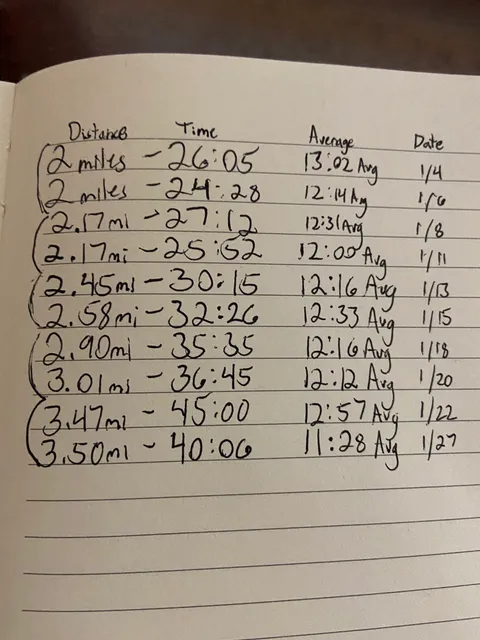 Distance Time Average Date
2 miles - 26:05 13:02 Avg 1/4
2 miles - 24:28 12:14 Avg 1/6
2.17mi - 27:12 12:31 Avg 1/8
2.17mi - 25:52 12:00 Avg 1/11
2.45mi - 30:15 12:16 Avg 1/13
2.58mi - 32:26 12:33 Avg 1/15
2.90mi - 35:35 12:16 Avg 1/18
3.01mi - 36:45 12:12 Avg 1/20
3.47mi - 45:00 12:57 Avg 1/22
3.50mi - 40:06 11:28 Avg 1/27